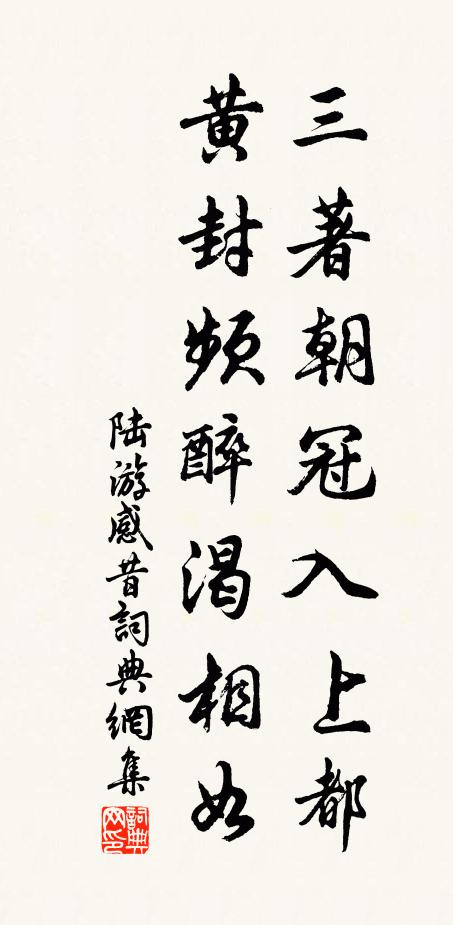 三著朝冠入上都
黄封频醉渴相如
陆游感昔詞典網集
詞典網印